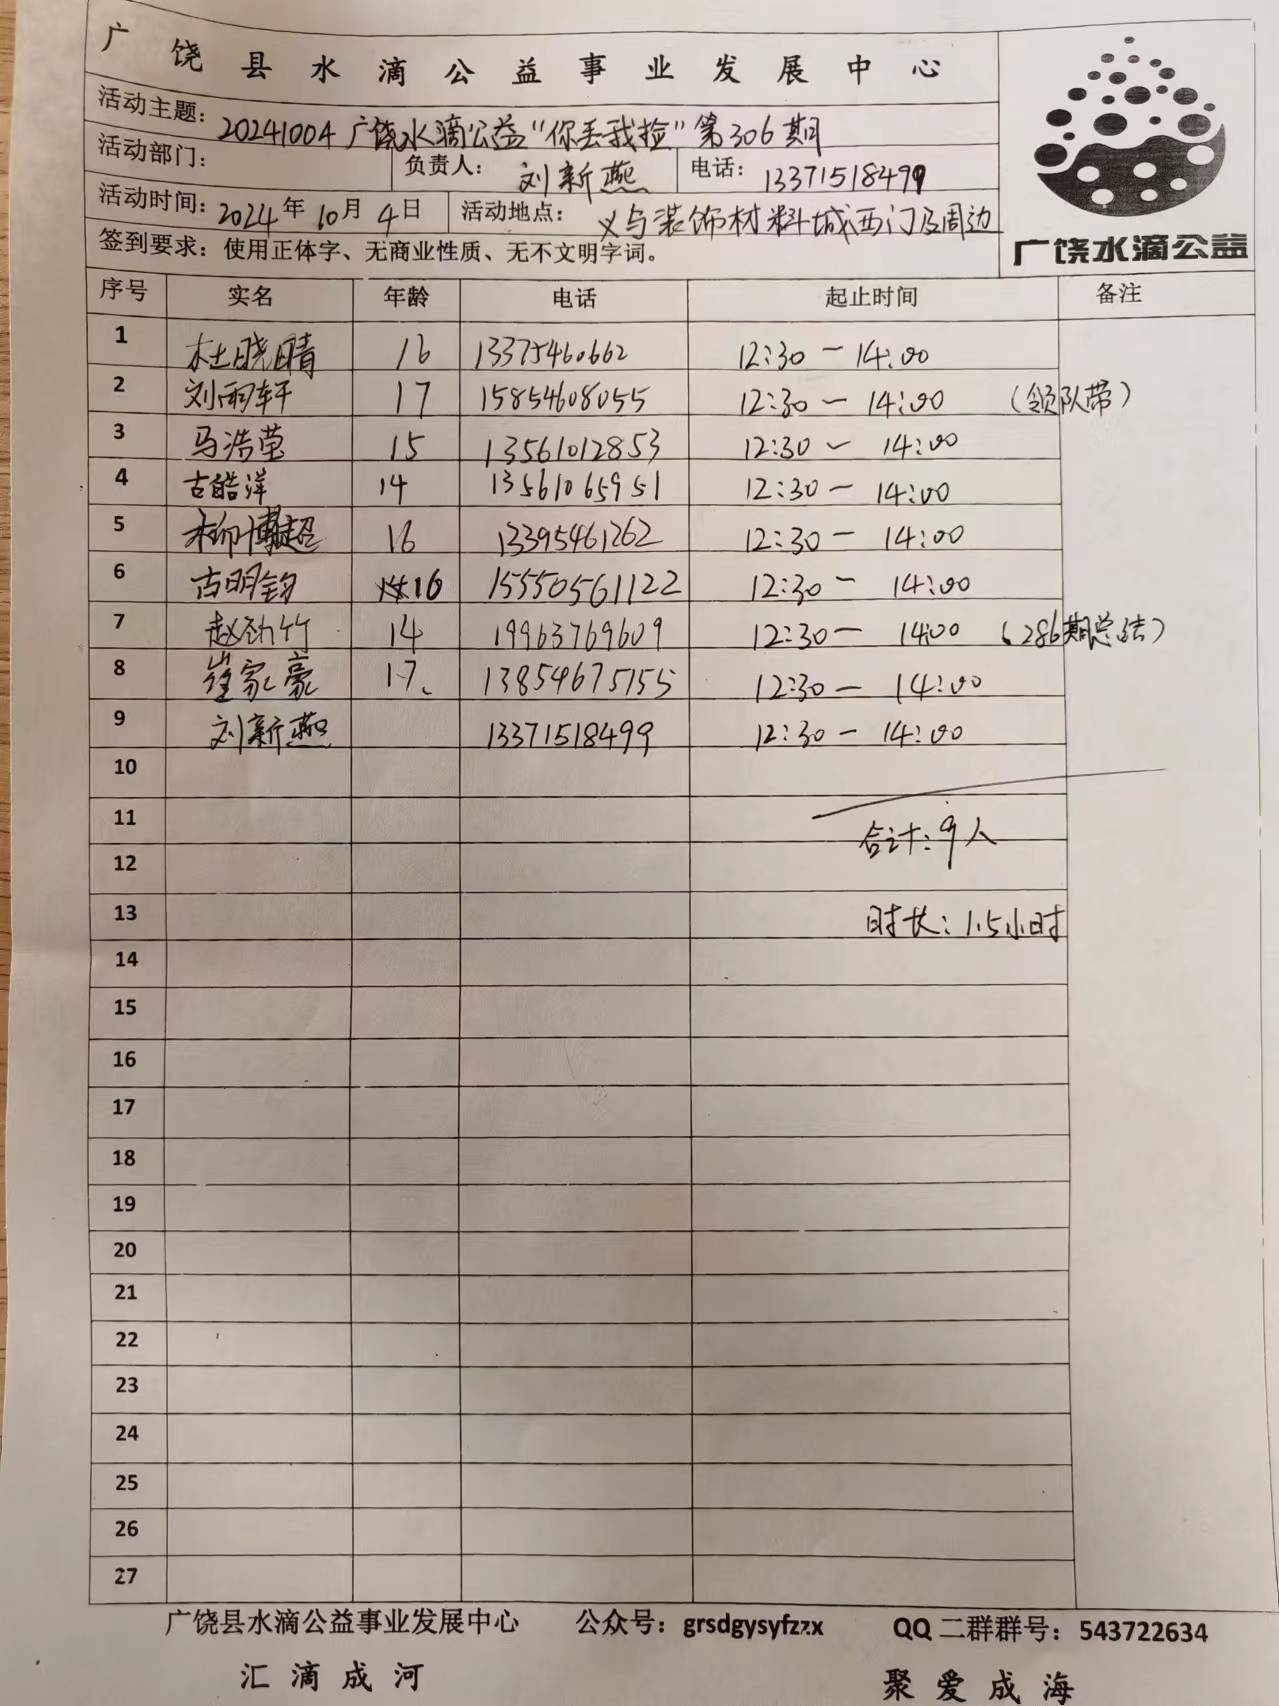 广饶县水滴公益事业发展中心
活动主题：20241004广饶水滴公益“你丢我捡”第306期
活动部门： 负责人：刘新燕 电话：13371518499
活动时间：2024年10月4日 活动地点：义乌装饰材料城西门及周边
签到要求：使用正体字、无商业性质、无不文明字词。
广饶水滴公益
序号 实名 年龄 电话 起止时间 备注
1 杜晓晴 16 13375460662 12:30－14:00
2 刘雨轩 17 15854608055 12:30－14:00 （领队带）
3 马浩莹 15 13561012853 12:30－14:00
4 古皓洋 14 13561065951 12:30－14:00
5 柳博超 16 13395461262 12:30－14:00
6 古明钧 16 15550561122 12:30－14:00
7 赵劲竹 14 19963769609 12:30－14:00 （286期总结）
8 崔家豪 17、 13854675155 12:30－14:00
9 刘新燕 13371518499 12:30－14:00
10
11
合计：9人
12
13 时长：1.5小时
14
15
16
17
18
19
20
21
22
23
24
25
26
27
广饶县水滴公益事业发展中心 公众号：grsdgysyfzzx QQ二群群号：543722634
汇滴成河 聚爱成海